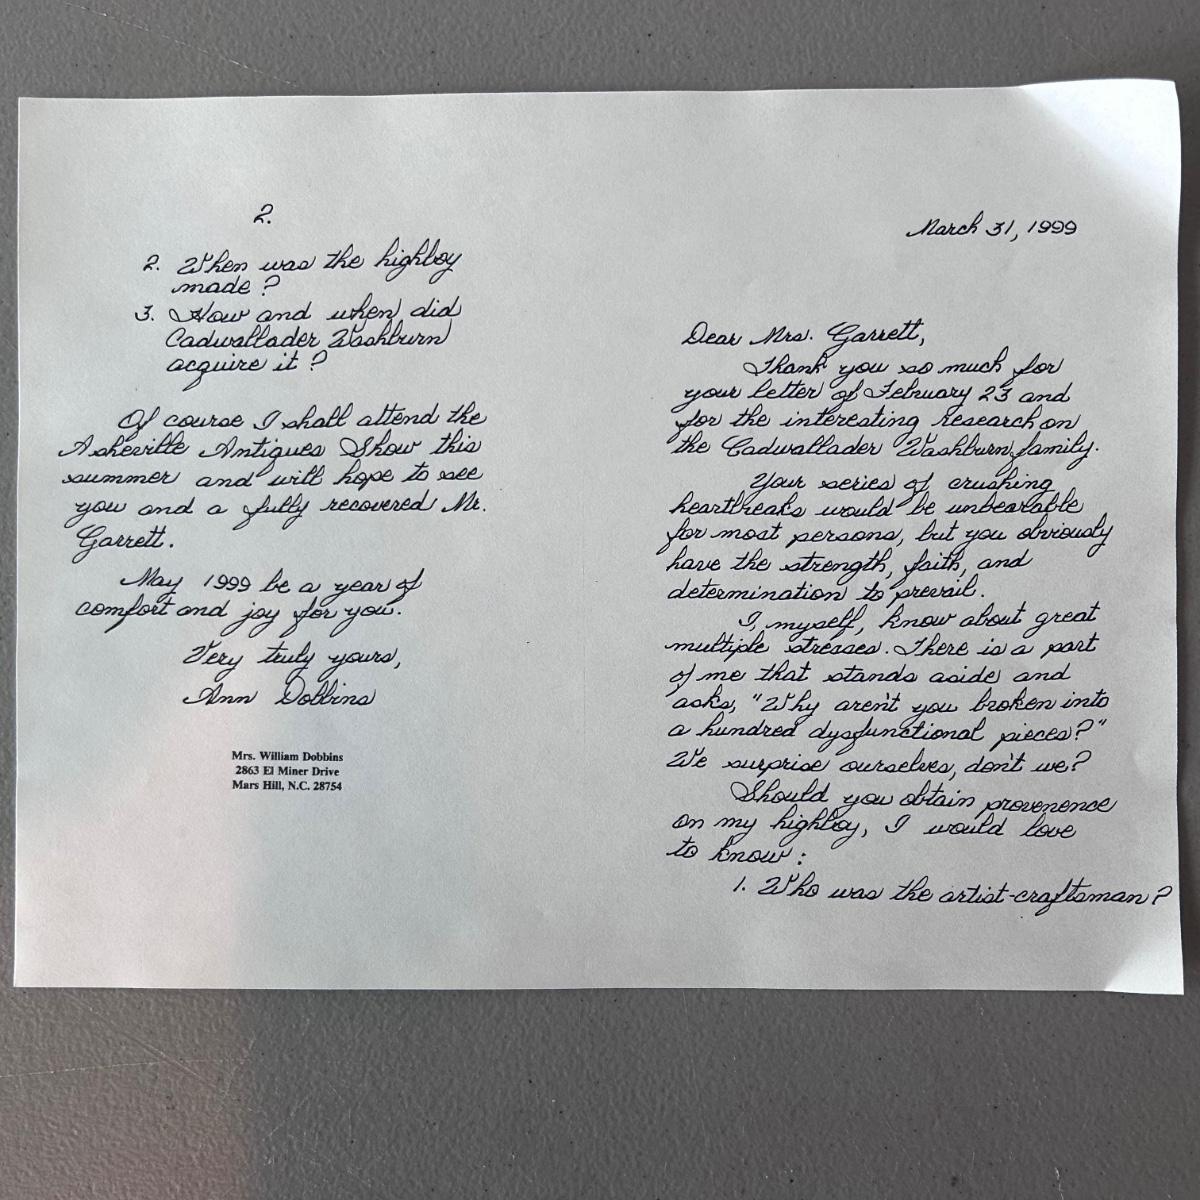 March 31, 1999
Dear Mrs. Garrett,
Thank you so much for
your letter of February 23 and
for the interesting research on
the Cadwallader Washburn family.
Your series of crushing
heartbreaks would be unbearable
for most persons, but you obviously
have the strength, faith, and
determination to prevail.
I, myself, know about great
multiple stresses. There is a part
of me that stands aside and
asks, "Why aren't you broken into
a hundred dysfunctional pieces?"
We surprise ourselves, don't we?
Should you obtain provenence
on my highboy, I would love
to know:
1. Who was the artist-craftsman?
2.
2. When was the highboy
made?
3. How and when did
Cadwallader Washburn
acquire it?
Of course I shall attend the
Asheville Antiques Show this
summer and will hope to see
you and a fully recovered Mr.
Garrett.
May 1999 be a year of
comfort and joy for you.
Very truly yours,
Ann Dobbins
Mrs. William Dobbins
2863 El Miner Drive
Mars Hill, N.C. 28754